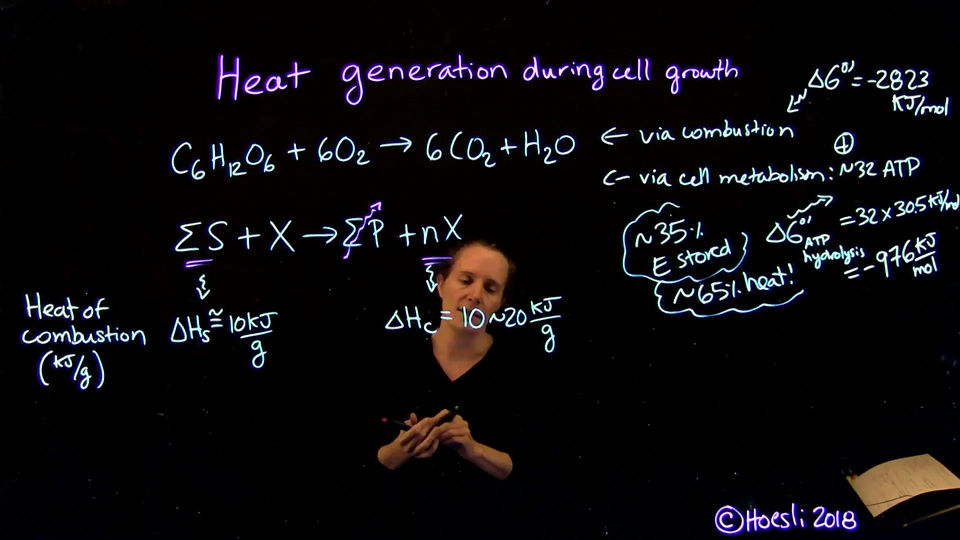 Heat generation during cell growth
ΔG°' = -2823 KJ/mol
C6H12O6 + 6O2 → 6CO2 + H2O ← via combustion
⊕
← via cell metabolism: ~32 ATP
ΣS + X → ΣP + nX
~35% E stored
~65% heat!
ΔG°' ATP hydrolysis = 32 x 30.5 KJ/mol
= -976 KJ/mol
Heat of combustion (KJ/g)
ΔHs ≅ 10 KJ/g
ΔHc = 10~20 KJ/g
©Hoesli 2018